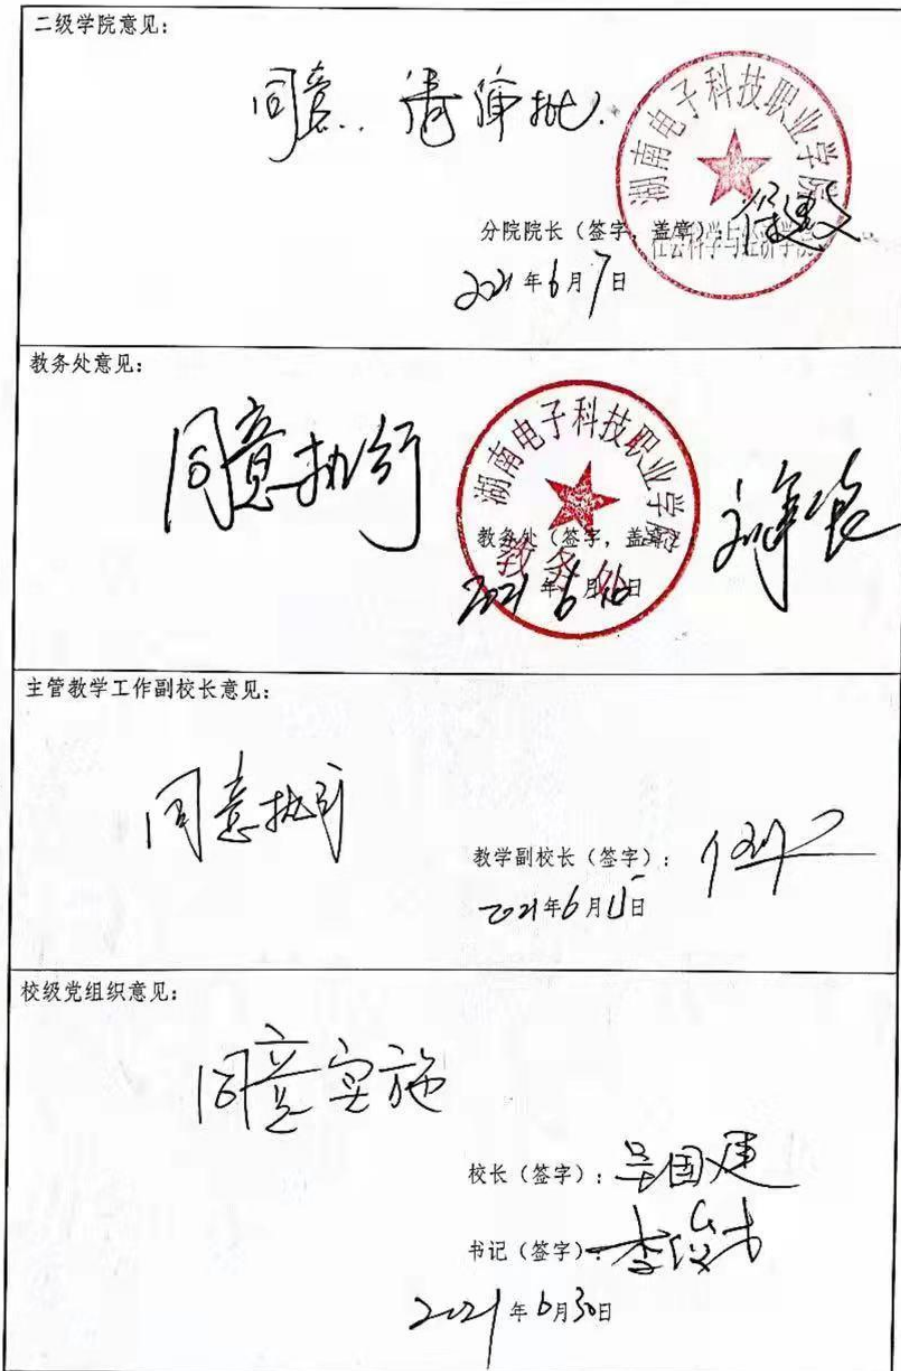 二级学院意见：
同意. 请审批.
湖南电子科技职业学院
分院院长（签字，盖章）：
社会科学与经济学院
2021年6月7日
教务处意见：
同意执行
湖南电子科技职业学院
教务处（签字，盖章）
教务处
2021年6月16日
主管教学工作副校长意见：
同意执行
教学副校长（签字）：
2021年6月 日
校级党组织意见：
同意实施
校长（签字）：吴国建
书记（签字）：李俊
2021年6月30日